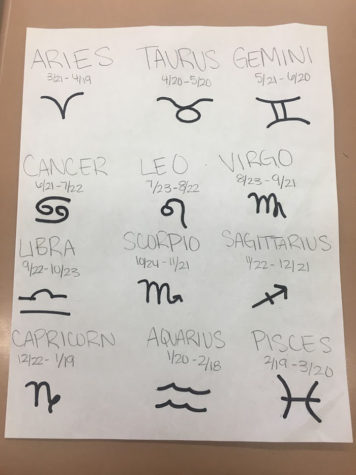 ARIES TAURUS GEMINI
3/21-4/19 4/20-5/20 5/21-6/20
CANCER LEO VIRGO
6/21-7/22 7/23-8/22 8/23-9/21
LIBRA SCORPIO SAGITTARIUS
9/22-10/23 10/24-11/21 11/22-12/21
CAPRICORN AQUARIUS PISCES
12/22-1/19 1/20-2/18 2/19-3/20